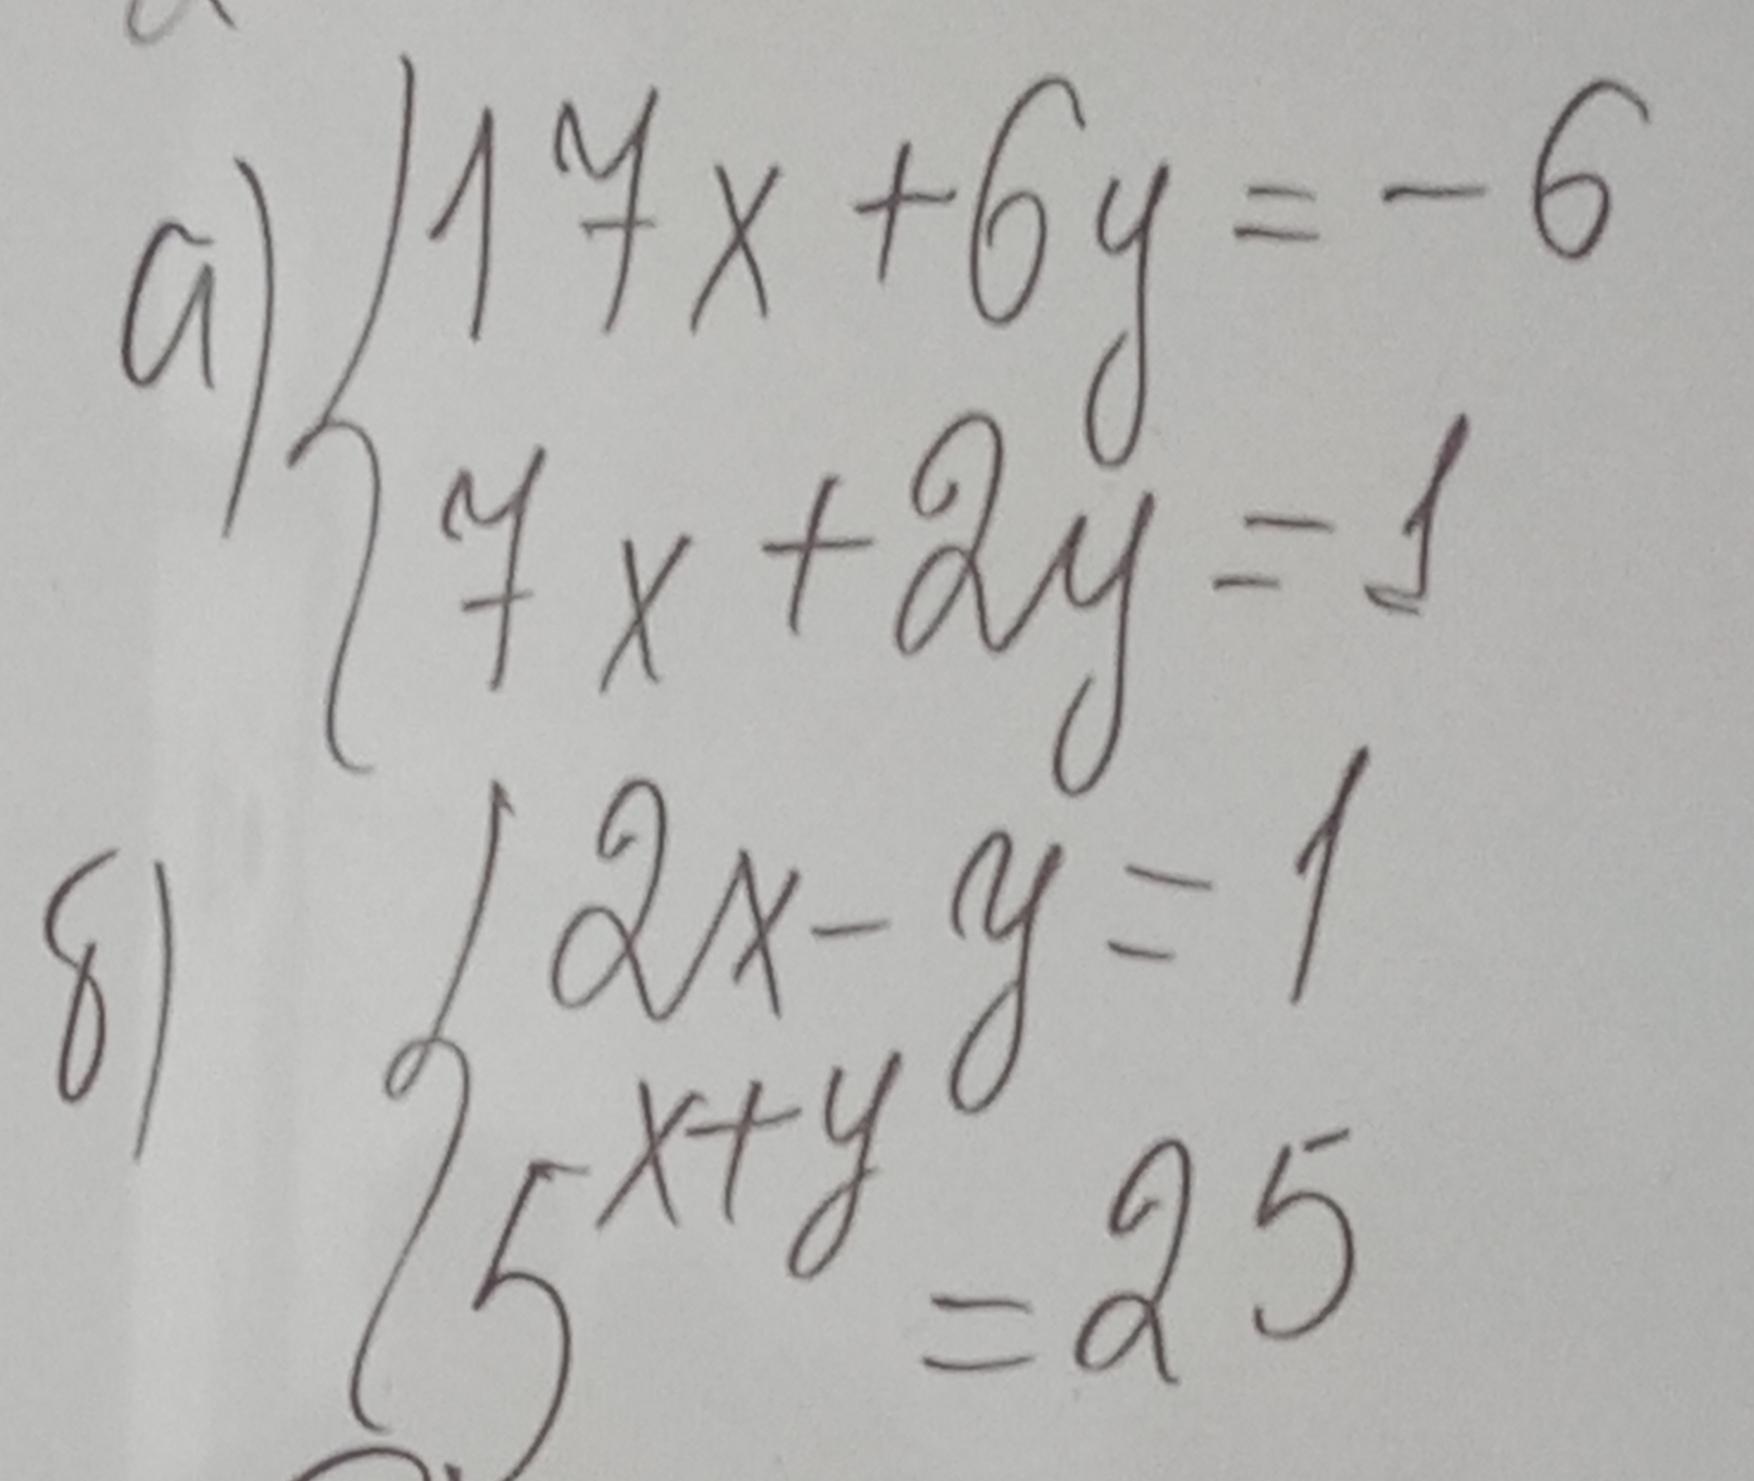 а) { 17x + 6y = - 6
7x + 2y = 1
б) { 2x - y = 1
5^{x+y} = 25